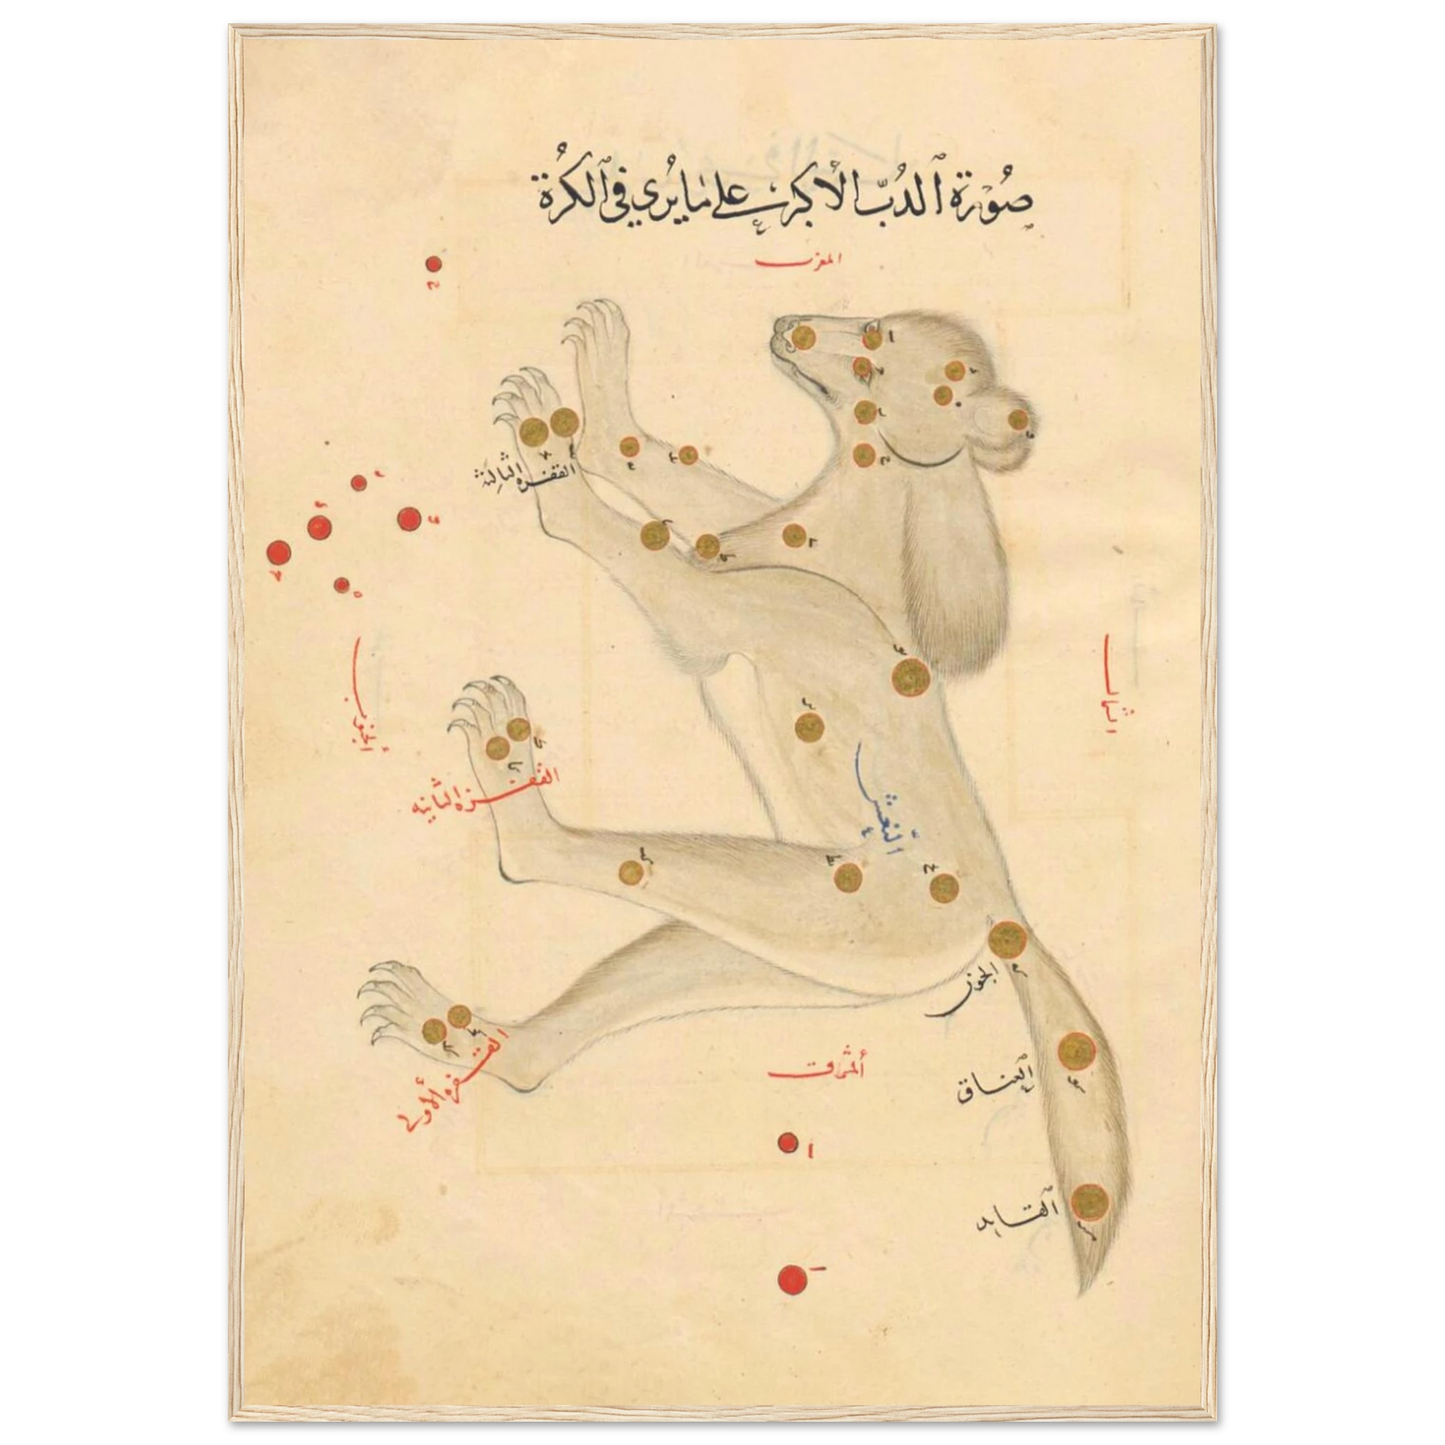 صورة الدب الأكبر على ما يرى في الكرة
المغرب
القفزة الثالثة
الجنوب
الشمال
القفزة الثانية
النعش
الجون
القفزة الأولى
المشرق
العناق
القايد